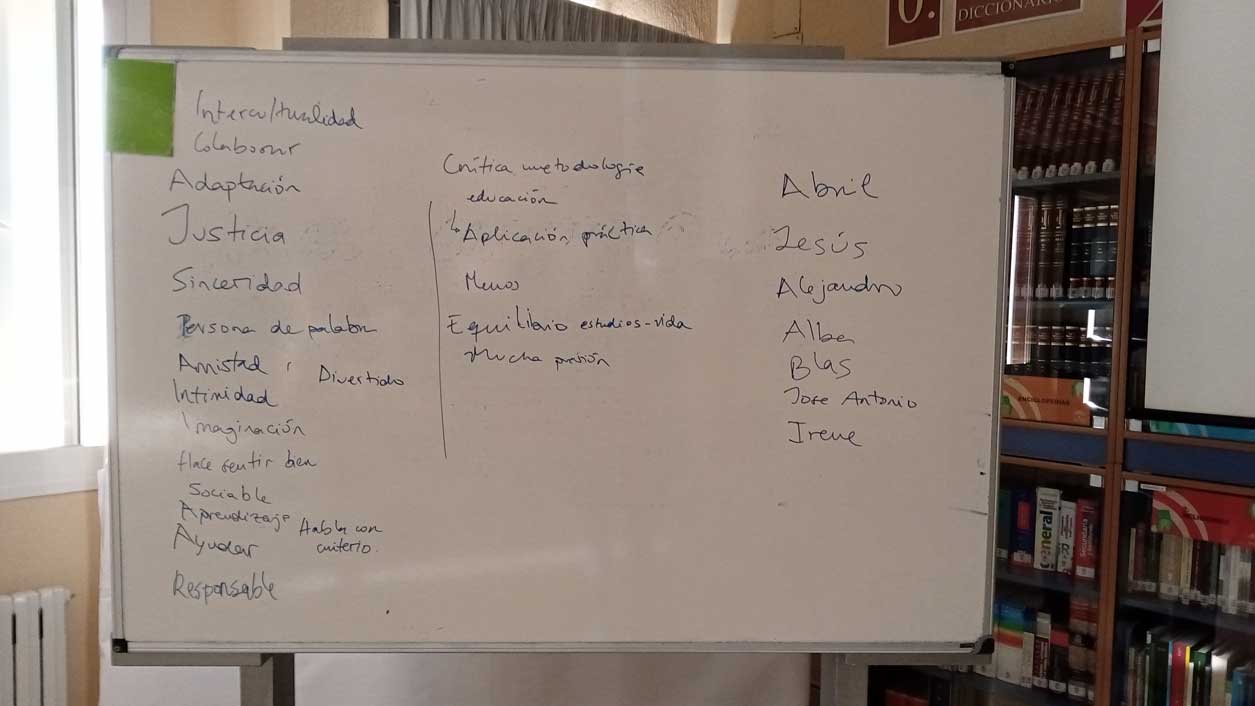 Interculturalidad
Colaborar
Adaptación
Justicia
Sinceridad
Persona de palabra
Amistad,
Divertido
Intimidad
Imaginación
Hace sentir bien
Sociable
Aprendizaje
Habla con
criterio.
Ayudar
Responsable
Crítica metodologie
educación
↳ Aplicación práctica
Menos
Equilibrio estudios-vida
Mucha presión
Abril
Jesús
Alejandro
Alba
Blas
Jose Antonio
Irene
0.
DICCIONARIO
ENCICLOPEDIAS